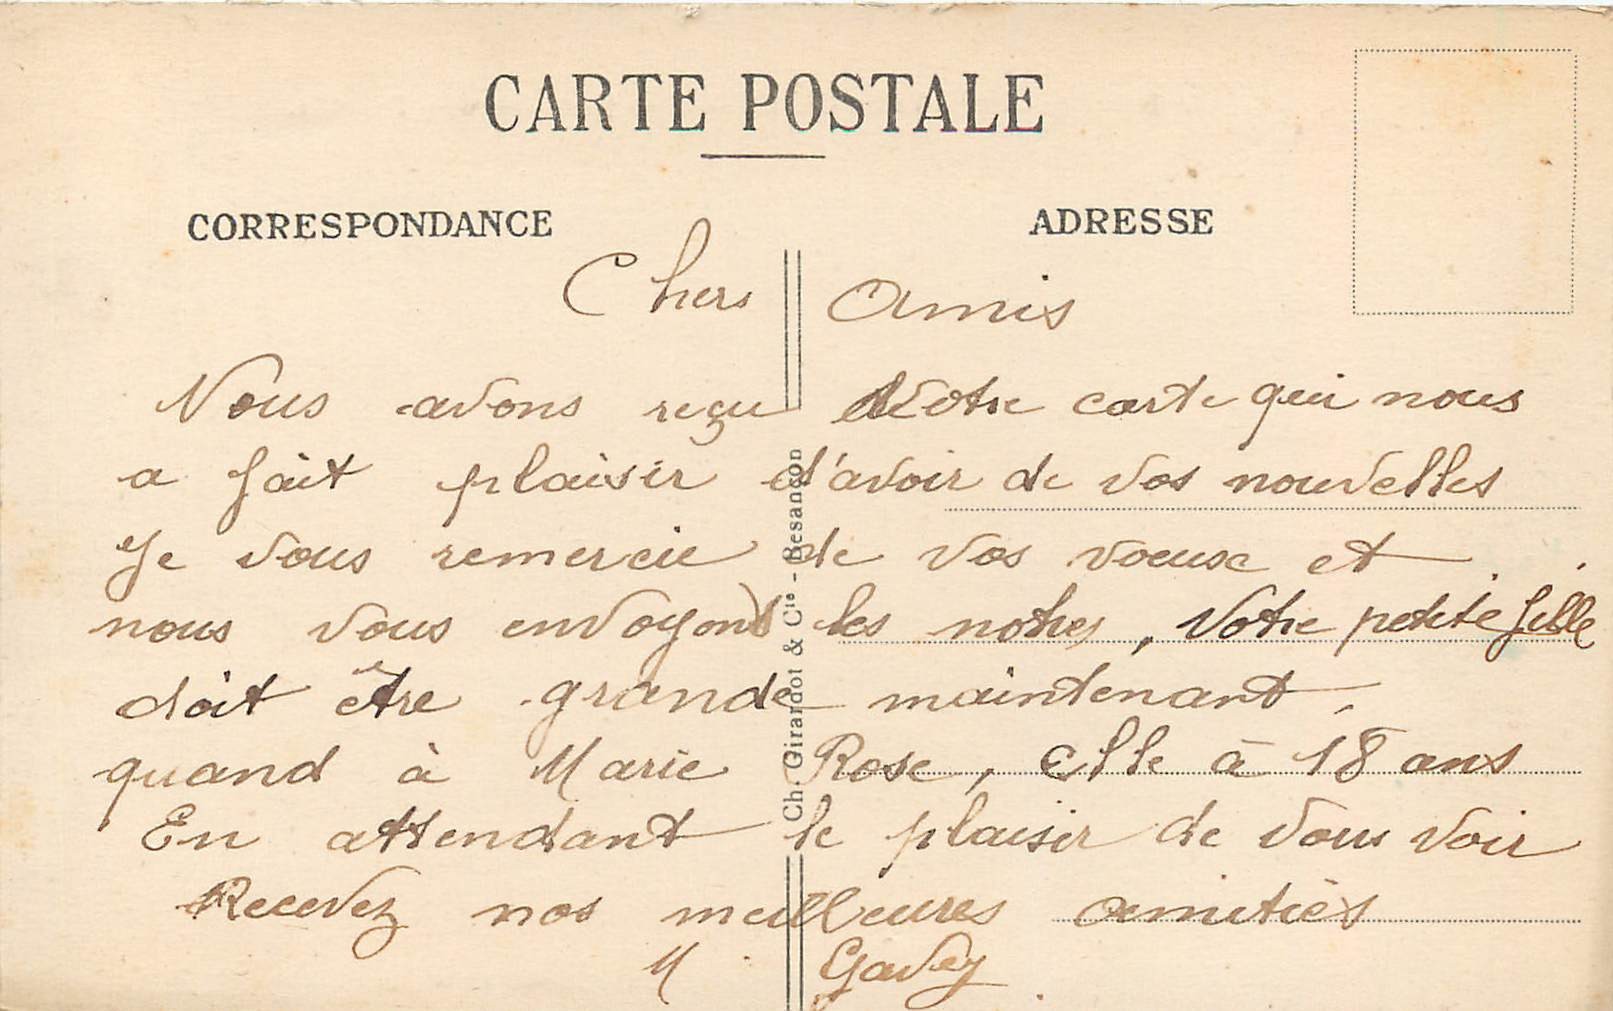 CARTE POSTALE
CORRESPONDANCE
ADRESSE
Chers Amis
Nous avons reçu Votre carte qui nous
a fait plaisir d'avoir de vos nouvelles
Je vous remercie de vos voeux et
nous vous envoyons les notres, Votre petite fille
doit être grande maintenant,
quand à Marie Rose, elle à 18 ans
En attendant le plaisir de vous voir
Recevez nos meilleures amitiés
M. Gavey
Ch. Girardot & Cie - Besançon